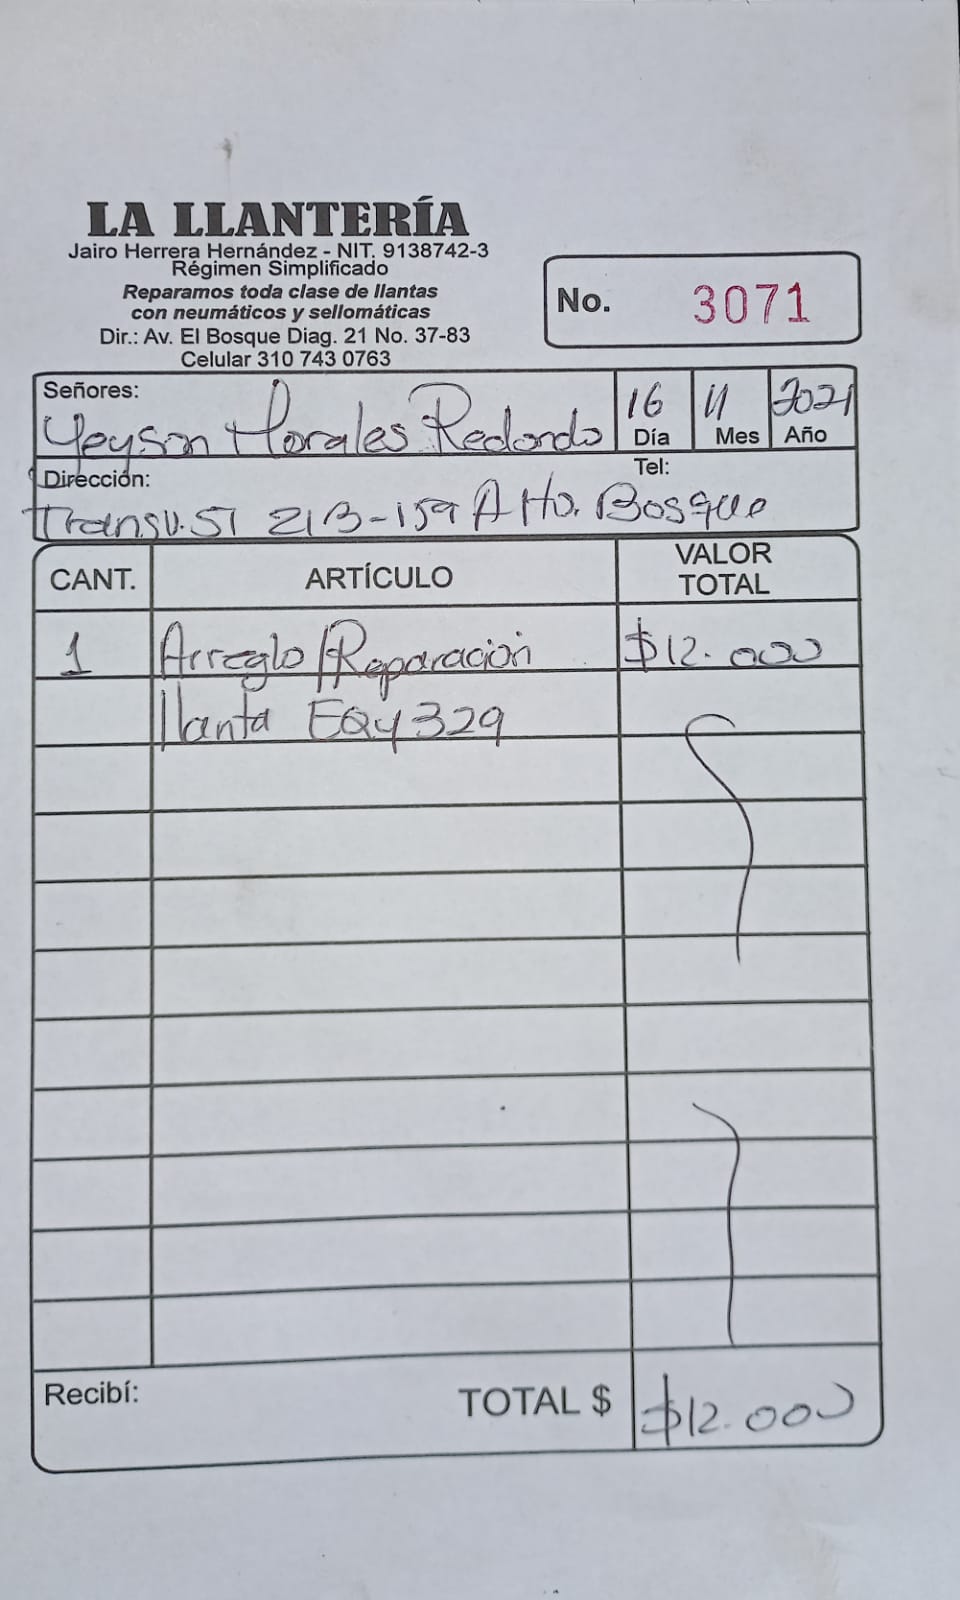 LA LLANTERÍA
Jairo Herrera Hernández - NIT. 9138742-3
Régimen Simplificado
Reparamos toda clase de llantas
con neumáticos y sellomáticas
Dir.: Av. El Bosque Diag. 21 No. 37-83
Celular 310 743 0763
No. 3071
Señores: Yeyson Morales Redondo
16 11 2021
Día Mes Año
Dirección: Tel:
Transv. 51 21B-159 Alto. Bosque
CANT. ARTÍCULO VALOR TOTAL
1 Arreglo/Reparación $12.000
llanta EQY329
Recibí: TOTAL $ $12.000